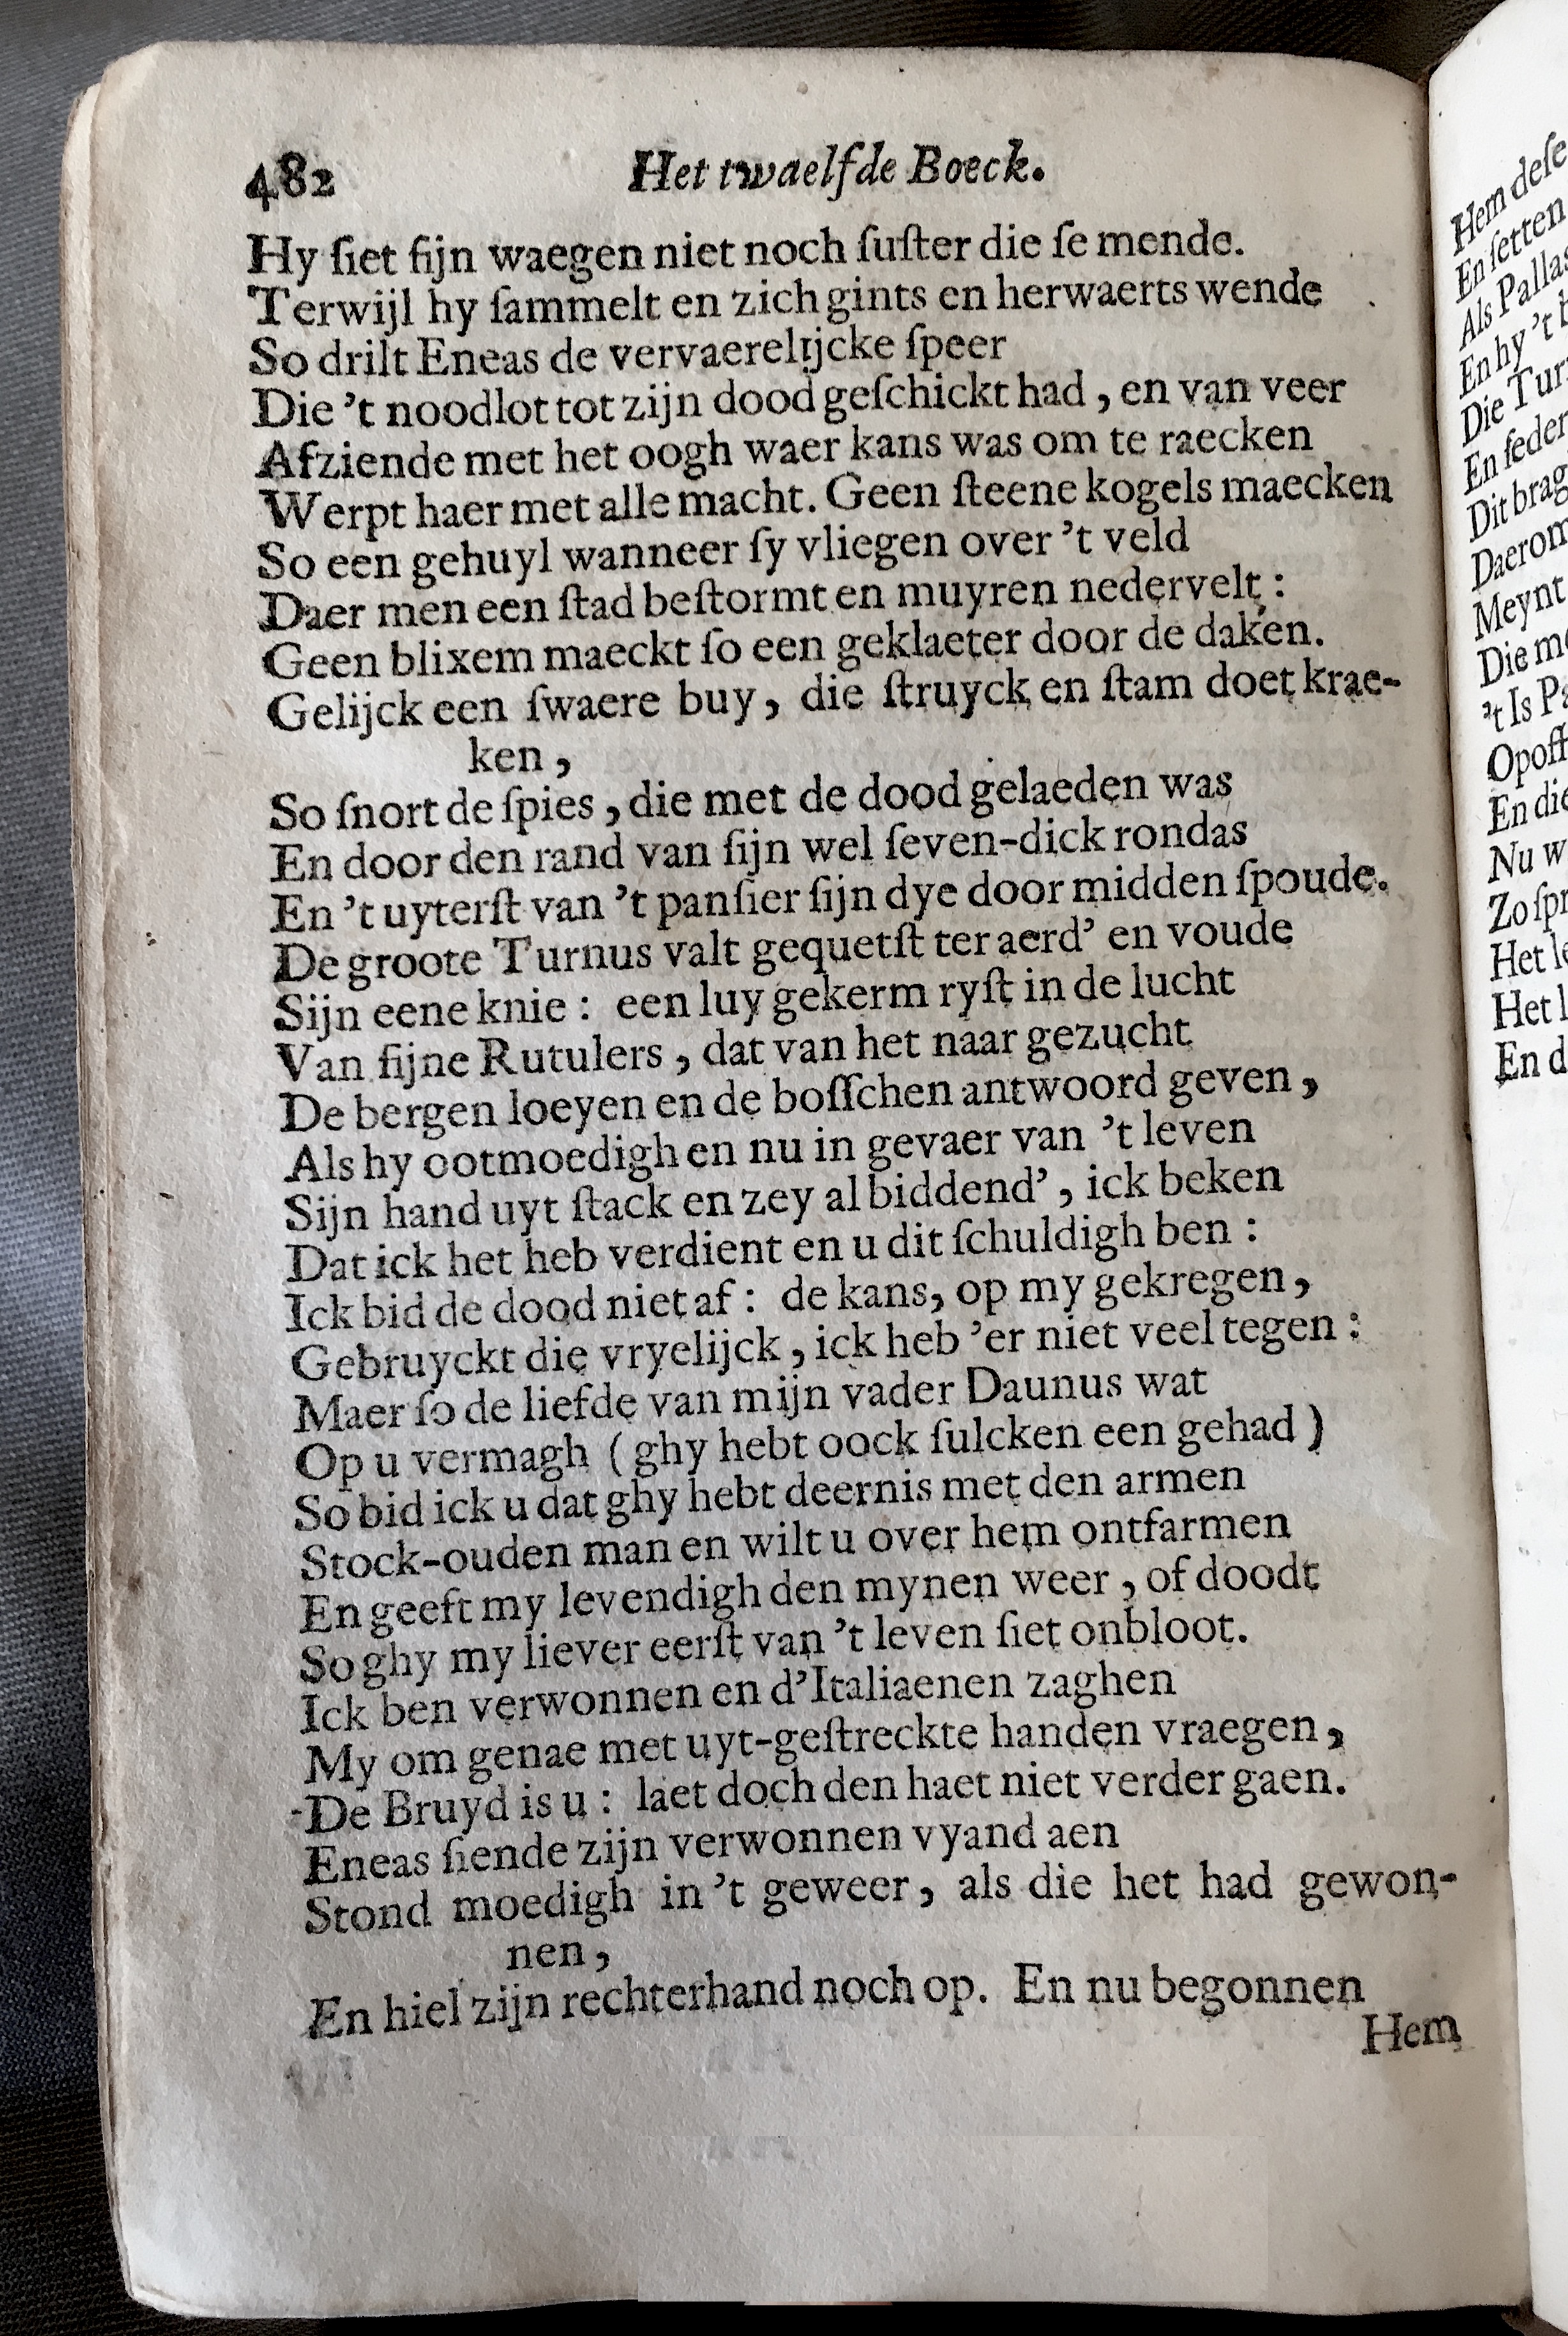 482 Het twaelfde Boeck.
Hy ſiet ſijn waegen niet noch ſuſter die ſe mende.
Terwijl hy ſammelt en zich gints en herwaerts wende
So drilt Eneas de vervaerelijcke ſpeer
Die 't noodlot tot zijn dood geſchickt had, en van veer
Afziende met het oogh waer kans was om te raecken
Werpt haer met alle macht. Geen ſteene kogels maecken
So een gehuyl wanneer ſy vliegen over 't veld
Daer men een ſtad beſtormt en muyren nedervelt:
Geen blixem maeckt ſo een geklaeter door de daken.
Gelijck een ſwaere buy, die ſtruyck en ſtam doet krae-
ken,
So ſnort de ſpies, die met de dood gelaeden was
En door den rand van ſijn wel ſeven-dick rondas
En 't uyterſt van 't panſier ſijn dye door midden ſpoude.
De groote Turnus valt gequetſt ter aerd' en voude
Sijn eene knie: een luy gekerm ryſt in de lucht
Van ſijne Rutulers, dat van het naar gezucht
De bergen loeyen en de boſſchen antwoord geven,
Als hy ootmoedigh en nu in gevaer van 't leven
Sijn hand uyt ſtack en zey al biddend', ick beken
Dat ick het heb verdient en u dit ſchuldigh ben:
Ick bid de dood niet af: de kans, op my gekregen,
Gebruyckt die vryelijck, ick heb 'er niet veel tegen:
Maer ſo de liefde van mijn vader Daunus wat
Op u vermagh (ghy hebt oock ſulcken een gehad)
So bid ick u dat ghy hebt deernis met den armen
Stock-ouden man en wilt u over hem ontfarmen
En geeft my levendigh den mynen weer, of doodt
So ghy my liever eerſt van 't leven ſiet onbloot.
Ick ben verwonnen en d'Italiaenen zaghen
My om genae met uyt-geſtreckte handen vraegen,
De Bruyd is u: laet doch den haet niet verder gaen.
Eneas ſiende zijn verwonnen vyand aen
Stond moedigh in 't geweer, als die het had gewon-
nen,
En hiel zijn rechterhand noch op. En nu begonnen
Hem
Hem deſe
En ſetten
Als Pallas
En hy 't
Die Tur
En ſeder
Dit brag
Daerom
Meynt
Die
't Is
En die
Nu
Het
Het
En